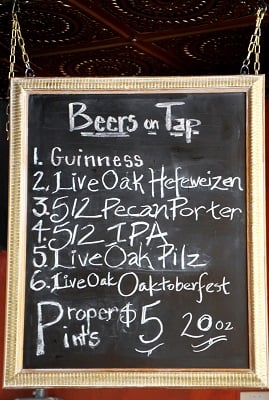 Beers on Tap
1. Guinness
2. Live Oak Hefeweizen
3. 512 Pecan Porter
4. 512 IPA
5. Live Oak Pilz
6. Live Oak Oaktoberfest
Proper $5 20 oz
Pints